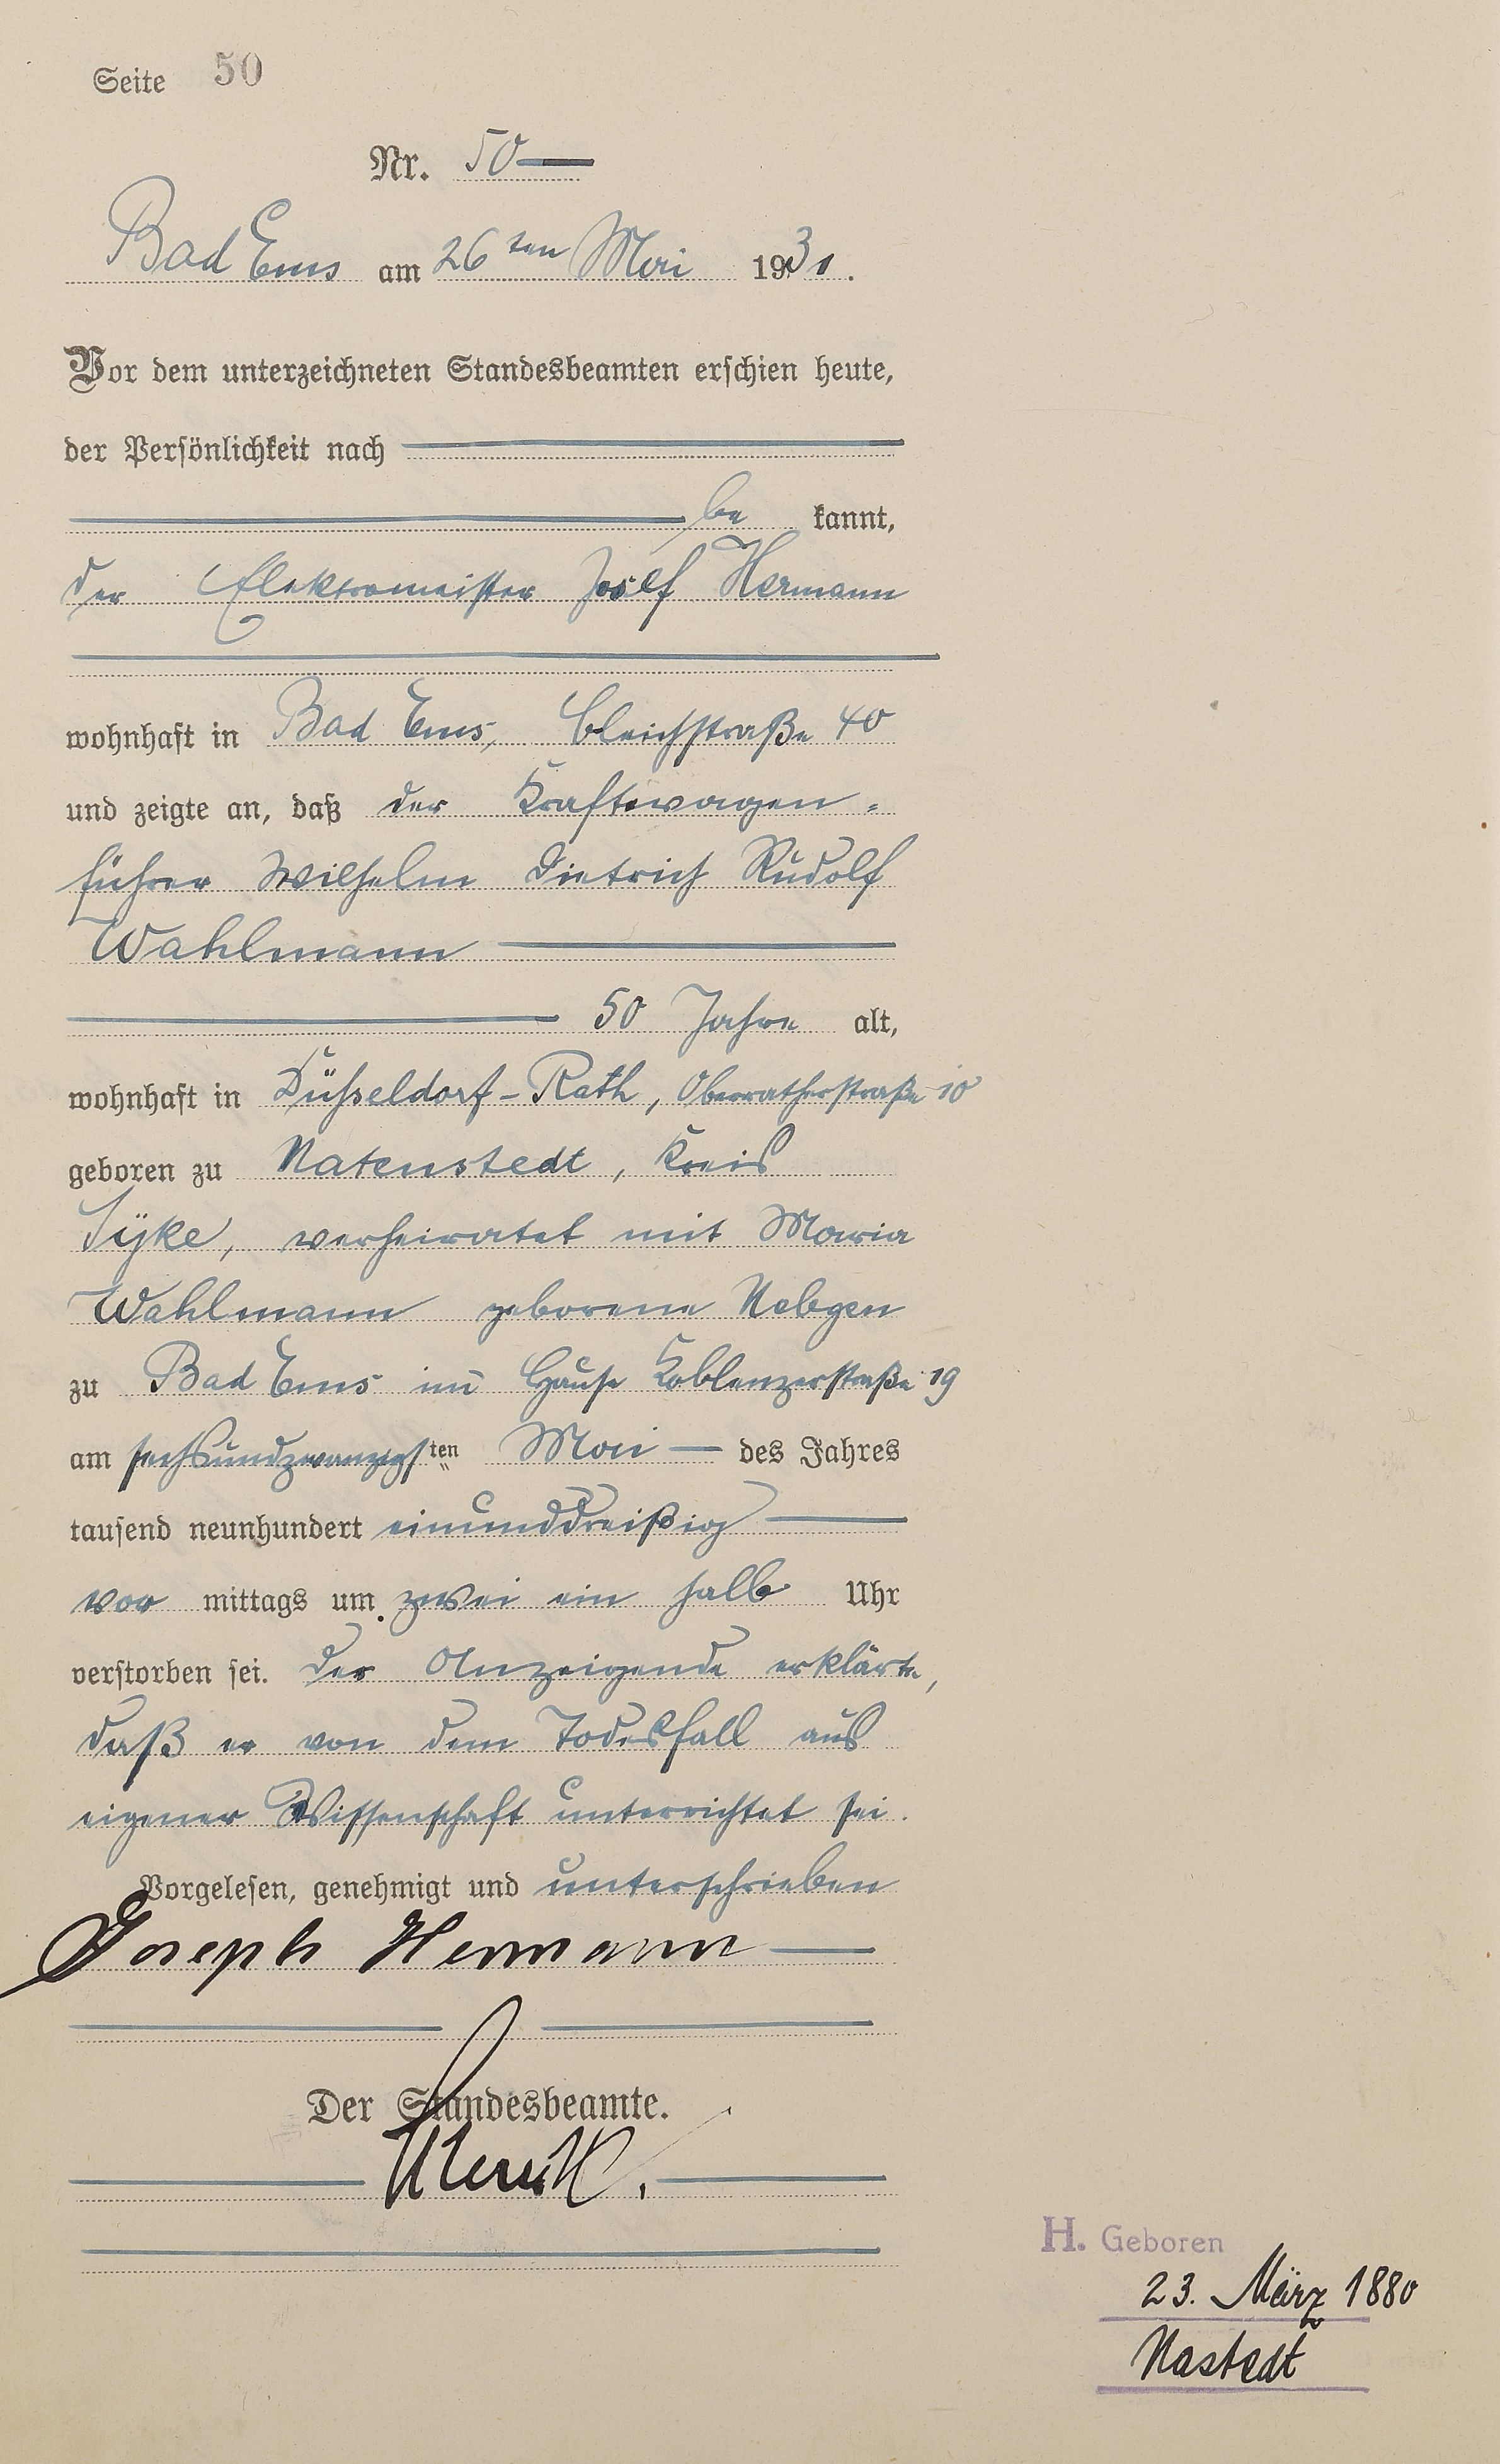 Seite 50
Nr. 50
Bad Ems am 26ten Mai 1931.
Vor dem unterzeichneten Standesbeamten erschien heute,
der Persönlichkeit nach
be kannt,
der Elektromeister Josef Hermann
wohnhaft in Bad Ems, Bleichstraße 40
und zeigte an, daß der Kraftwagen=
führer Wilhelm Dietrich Rudolf
Wahlmann
50 Jahre alt,
wohnhaft in Düsseldorf-Rath, Oberratherstraße 10
geboren zu Natenstedt, Kreis
Syke, verheiratet mit Maria
Wahlmann geborene Nebgen
zu Bad Ems im Hause Koblenzerstraße 19
am sechsundzwanzigsten Mai des Jahres
tausend neunhundert einunddreißig
vor mittags um zwei ein halb Uhr
verstorben sei. Der Anzeigende erklärte,
daß er von dem Todesfall aus
eigener Wissenschaft unterrichtet sei.
Vorgelesen, genehmigt und unterschrieben
Joseph Hermann
Der Standesbeamte.
H. Geboren
23. März 1880
Nastedt